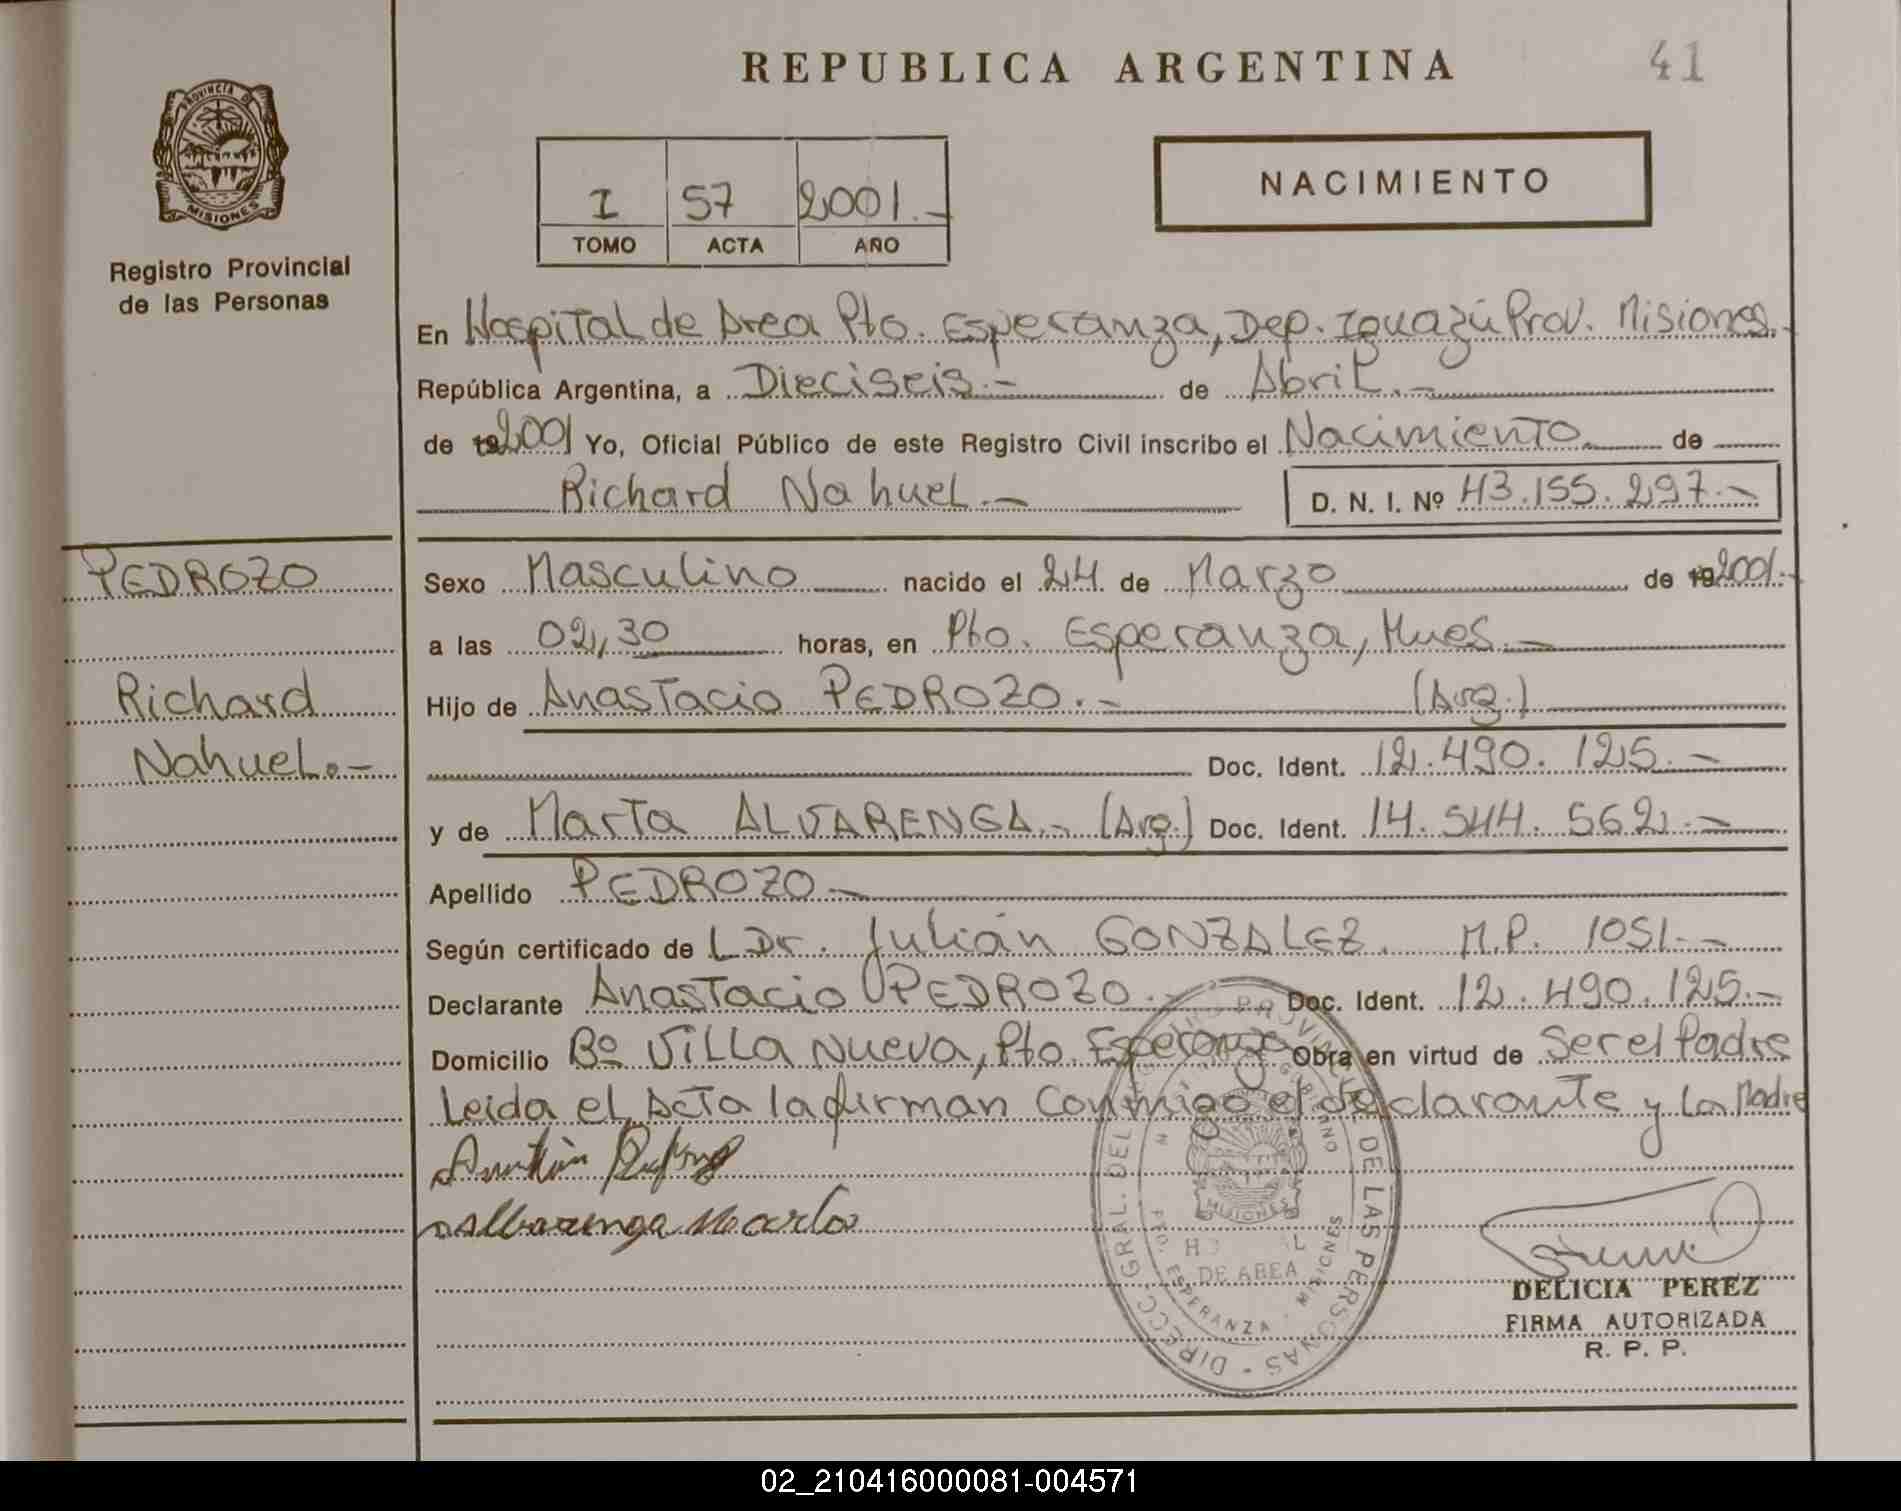 REPUBLICA ARGENTINA
41
PROVINCIA DE
MISIONES
Registro Provincial
de las Personas
I 57 2001.-
TOMO ACTA AÑO
NACIMIENTO
En Hospital de Area Pto. Esperanza, Dep. Iguazú Prov. Misiones.-
República Argentina, a Dieciseis.- de Abril.-
de 192001 Yo, Oficial Público de este Registro Civil inscribo el Nacimiento de
Richard Nahuel.-
D. N. I. Nº 43.155.297.-
PEDROZO
Richard
Nahuel.-
Sexo Masculino nacido el 24 de Marzo de 192001.-
a las 02,30 horas, en Pto. Esperanza, Mnes.-
Hijo de Anastacio PEDROZO.- (Arg.)
Doc. Ident. 12.490.125.-
y de Marta ALVARENGA.- (Arg.) Doc. Ident. 14.544.562.-
Apellido PEDROZO.-
Según certificado de L Dr. Julián GONZALEZ. M.P. 1051.-
Declarante Anastacio PEDROZO.- Doc. Ident. 12.490.125.-
Domicilio Bº Villa Nueva, Pto. Esperanza Obra en virtud de Ser el Padre
Leida el Acta la firman conmigo el declarante y La Madre
Albarenga Marta
DIRECC. GRAL. DEL REGISTRO PROVINCIAL DE LAS PERSONAS
MISIONES
HOSPITAL
DE AREA
PTO. ESPERANZA - MISIONES
DELICIA PEREZ
FIRMA AUTORIZADA
R. P. P.
02_210416000081-004571